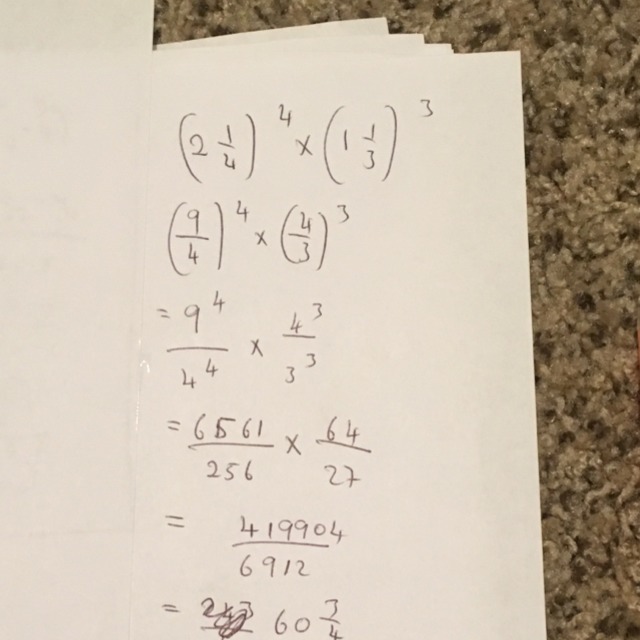 (2 1/4)^4 × (1 1/3)^3
(9/4)^4 × (4/3)^3
= 9^4/4^4 × 4^3/3^3
= 6561/256 × 64/27
= 419904/6912
= 60 3/4